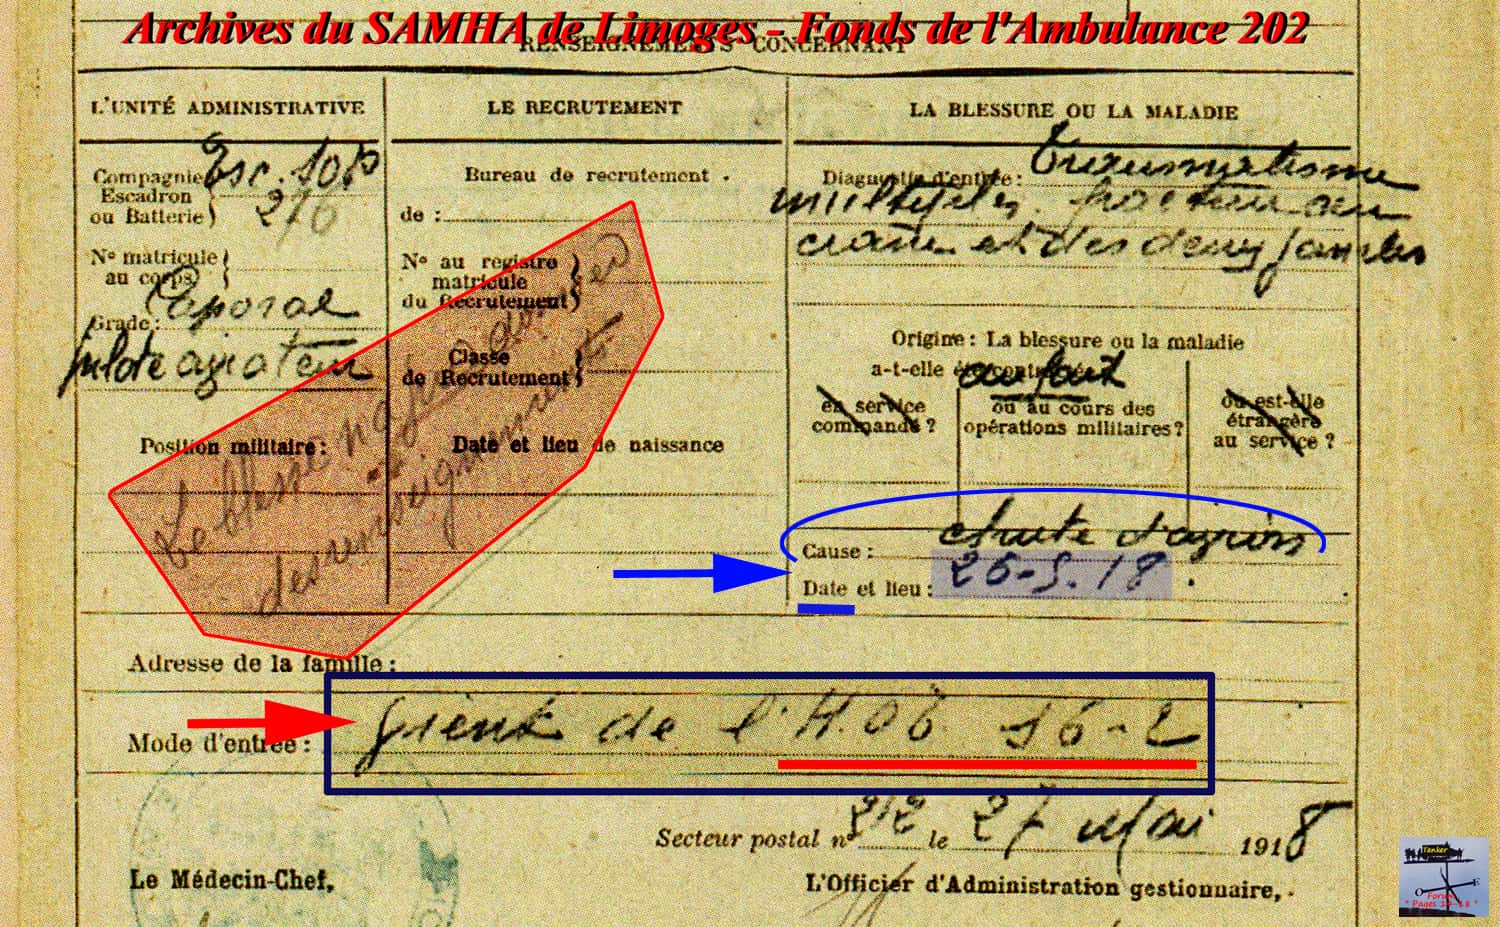 Archives du SAMHA de Limoges - Fonds de l'Ambulance 202
RENSEIGNEMENTS CONCERNANT
L'UNITÉ ADMINISTRATIVE
Compagnie
Escadron
ou Batterie
Esc.
Nº matricule
au corps
Grade: Caporal
pilote aviateur
Position militaire:
LE RECRUTEMENT
Bureau de recrutement.
de:
Nº au registre
matricule
du Recrutement
Classe
de Recrutement
Date et lieu de naissance
Le blessé n'a pu donner
des renseignements
LA BLESSURE OU LA MALADIE
Diagnostic d'entrée: Traumatisme
multiples fracture du
crâne et des deux jambes
Origine: La blessure ou la maladie
a-t-elle été contractée
au front
en service
commandé?
ou au cours des
opérations militaires?
ou est-elle
étrangère
au service?
Cause: chute d'avion
Date et lieu: 26-5.18.
Adresse de la famille:
Mode d'entrée: Vient de l'H.O.E. 16-2
Secteur postal nº 212 le 27 Mai 1918
Le Médecin-Chef,
L'Officier d'Administration gestionnaire,
Tanker
O E
Forum
" Pages 14-18 "